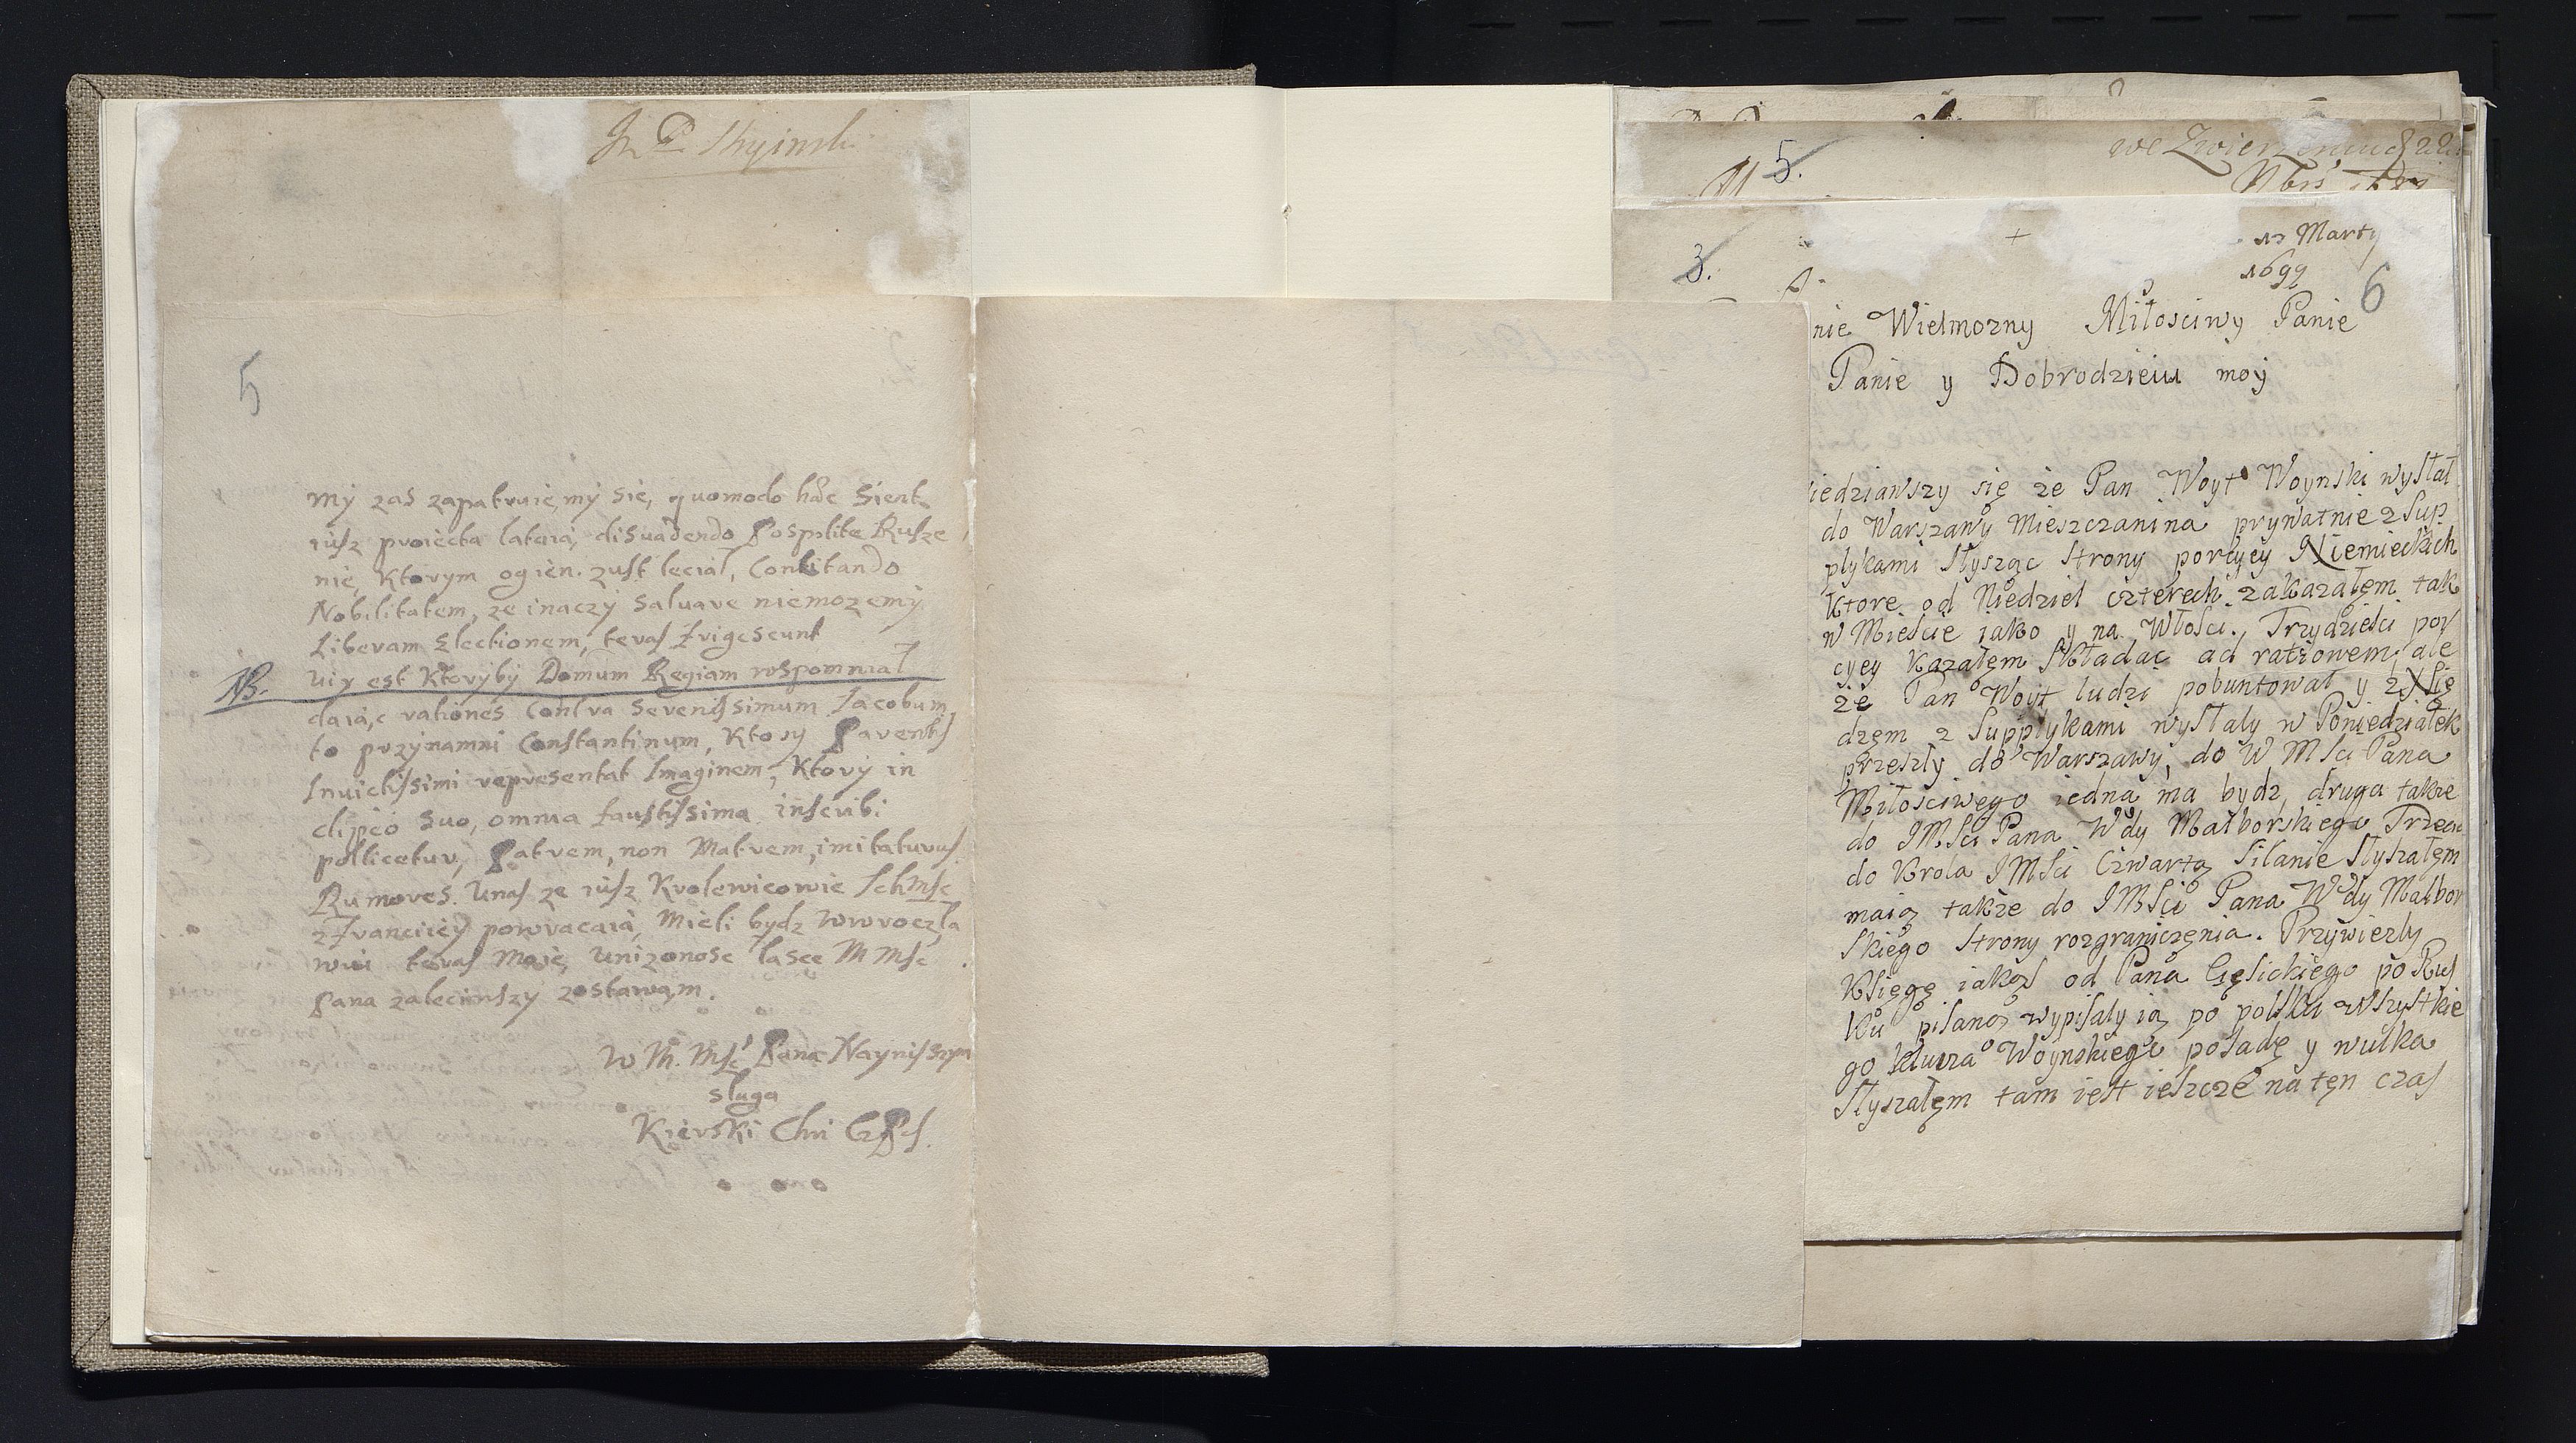 5
my zas zapatruie, my sie, quomodo hæc sient
iusz proiecta lataią, disuadendo Pospolite Rusze
nie, Ktorym ogien. zust leciał, Conlitando
Nobilitatem, ze inaczy saluare niemozemy
Liberam Electionem, teras frigescunt
NB. uix est Ktoryby Domum Regiam wspomniał
daią,c rationes Contra Serenissimum Iacobum
to przynamni Constantinum, Ktory Parentis
Inuictissimi representat Imaginem, Ktory in
clipeo suo, omnia faustissima inscribi
pollicetur, Patrem, non Matrem, imitaturus
Rumores. Unas ze iusz Krolewicowie Ichmsc
zfranciiey powracaią, Mieli bydz wwrocła
wiu teras Moie, unizonosc lasce W Msc
Pana zaleciwszy zostawam.
W M. Msc Pana Nayniszym
sluga
Kierski
5.
we
3.
Marty
1699
6
nie Wielmozny Miłosciwy Panie
Panie y Dobrodzieiu moy
iedziawszy się ze Pan Woyt Woynski wysłał
do Warszawy Mieszczanina prywatnie z Sup
plykami słysząc strony porcyey Niemieckich
Ktore od Niedziel czterech zakazałęm tak
w Miescie iako y na Włosci. Trzydziesci por
cyey Kazałęm składac ad rationem, ale
ze Pan Woyt ludzi pobuntował y z Xsię
dzęm z Supplykami wysłaly w Poniedziałek
przeszly do Warszawy, do W Msci Pana
Miłosciwego iedna ma bydz, druga takze
do IMsci Pana Wdy Malborskiego Trzecia
do Krola IMsci Czwartą silanie słyszałęm
maią takze do IMsci Pana Wdy Malbor
skiego strony rozgraniczęnia. Przywiezly
Księgę iakąs od Pana Gęsickiego po Rus
ku pisaną wypisaly ią po polsku wszystkie
go Woynskiego posadę y wulka
słyszałęm tam iest ieszcze na tęn czas